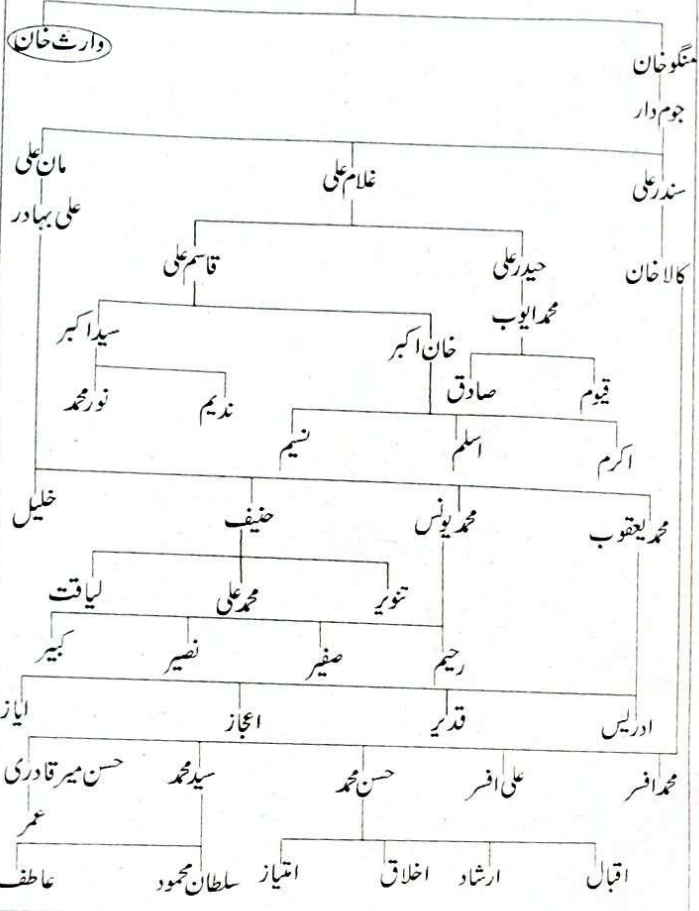 منگو خان وارث خان
جوم دار
سندر علی غلام علی مان علی
کالا خان علی بہادر
حیدر علی قاسم علی
محمد ایوب خان اکبر سید اکبر
قیوم صادق ندیم نور محمد
اکرم اسلم نسیم
محمد یعقوب محمد یونس حنیف خلیل
تنویر محمد علی لیاقت
رحیم صفیر نصیر کبیر
ادریس قدیر اعجاز ایاز
محمد افسر علی افسر حسن محمد سید محمد حسن میر قادری
عمر
اقبال ارشاد اخلاق امتیاز سلطان محمود عاطف